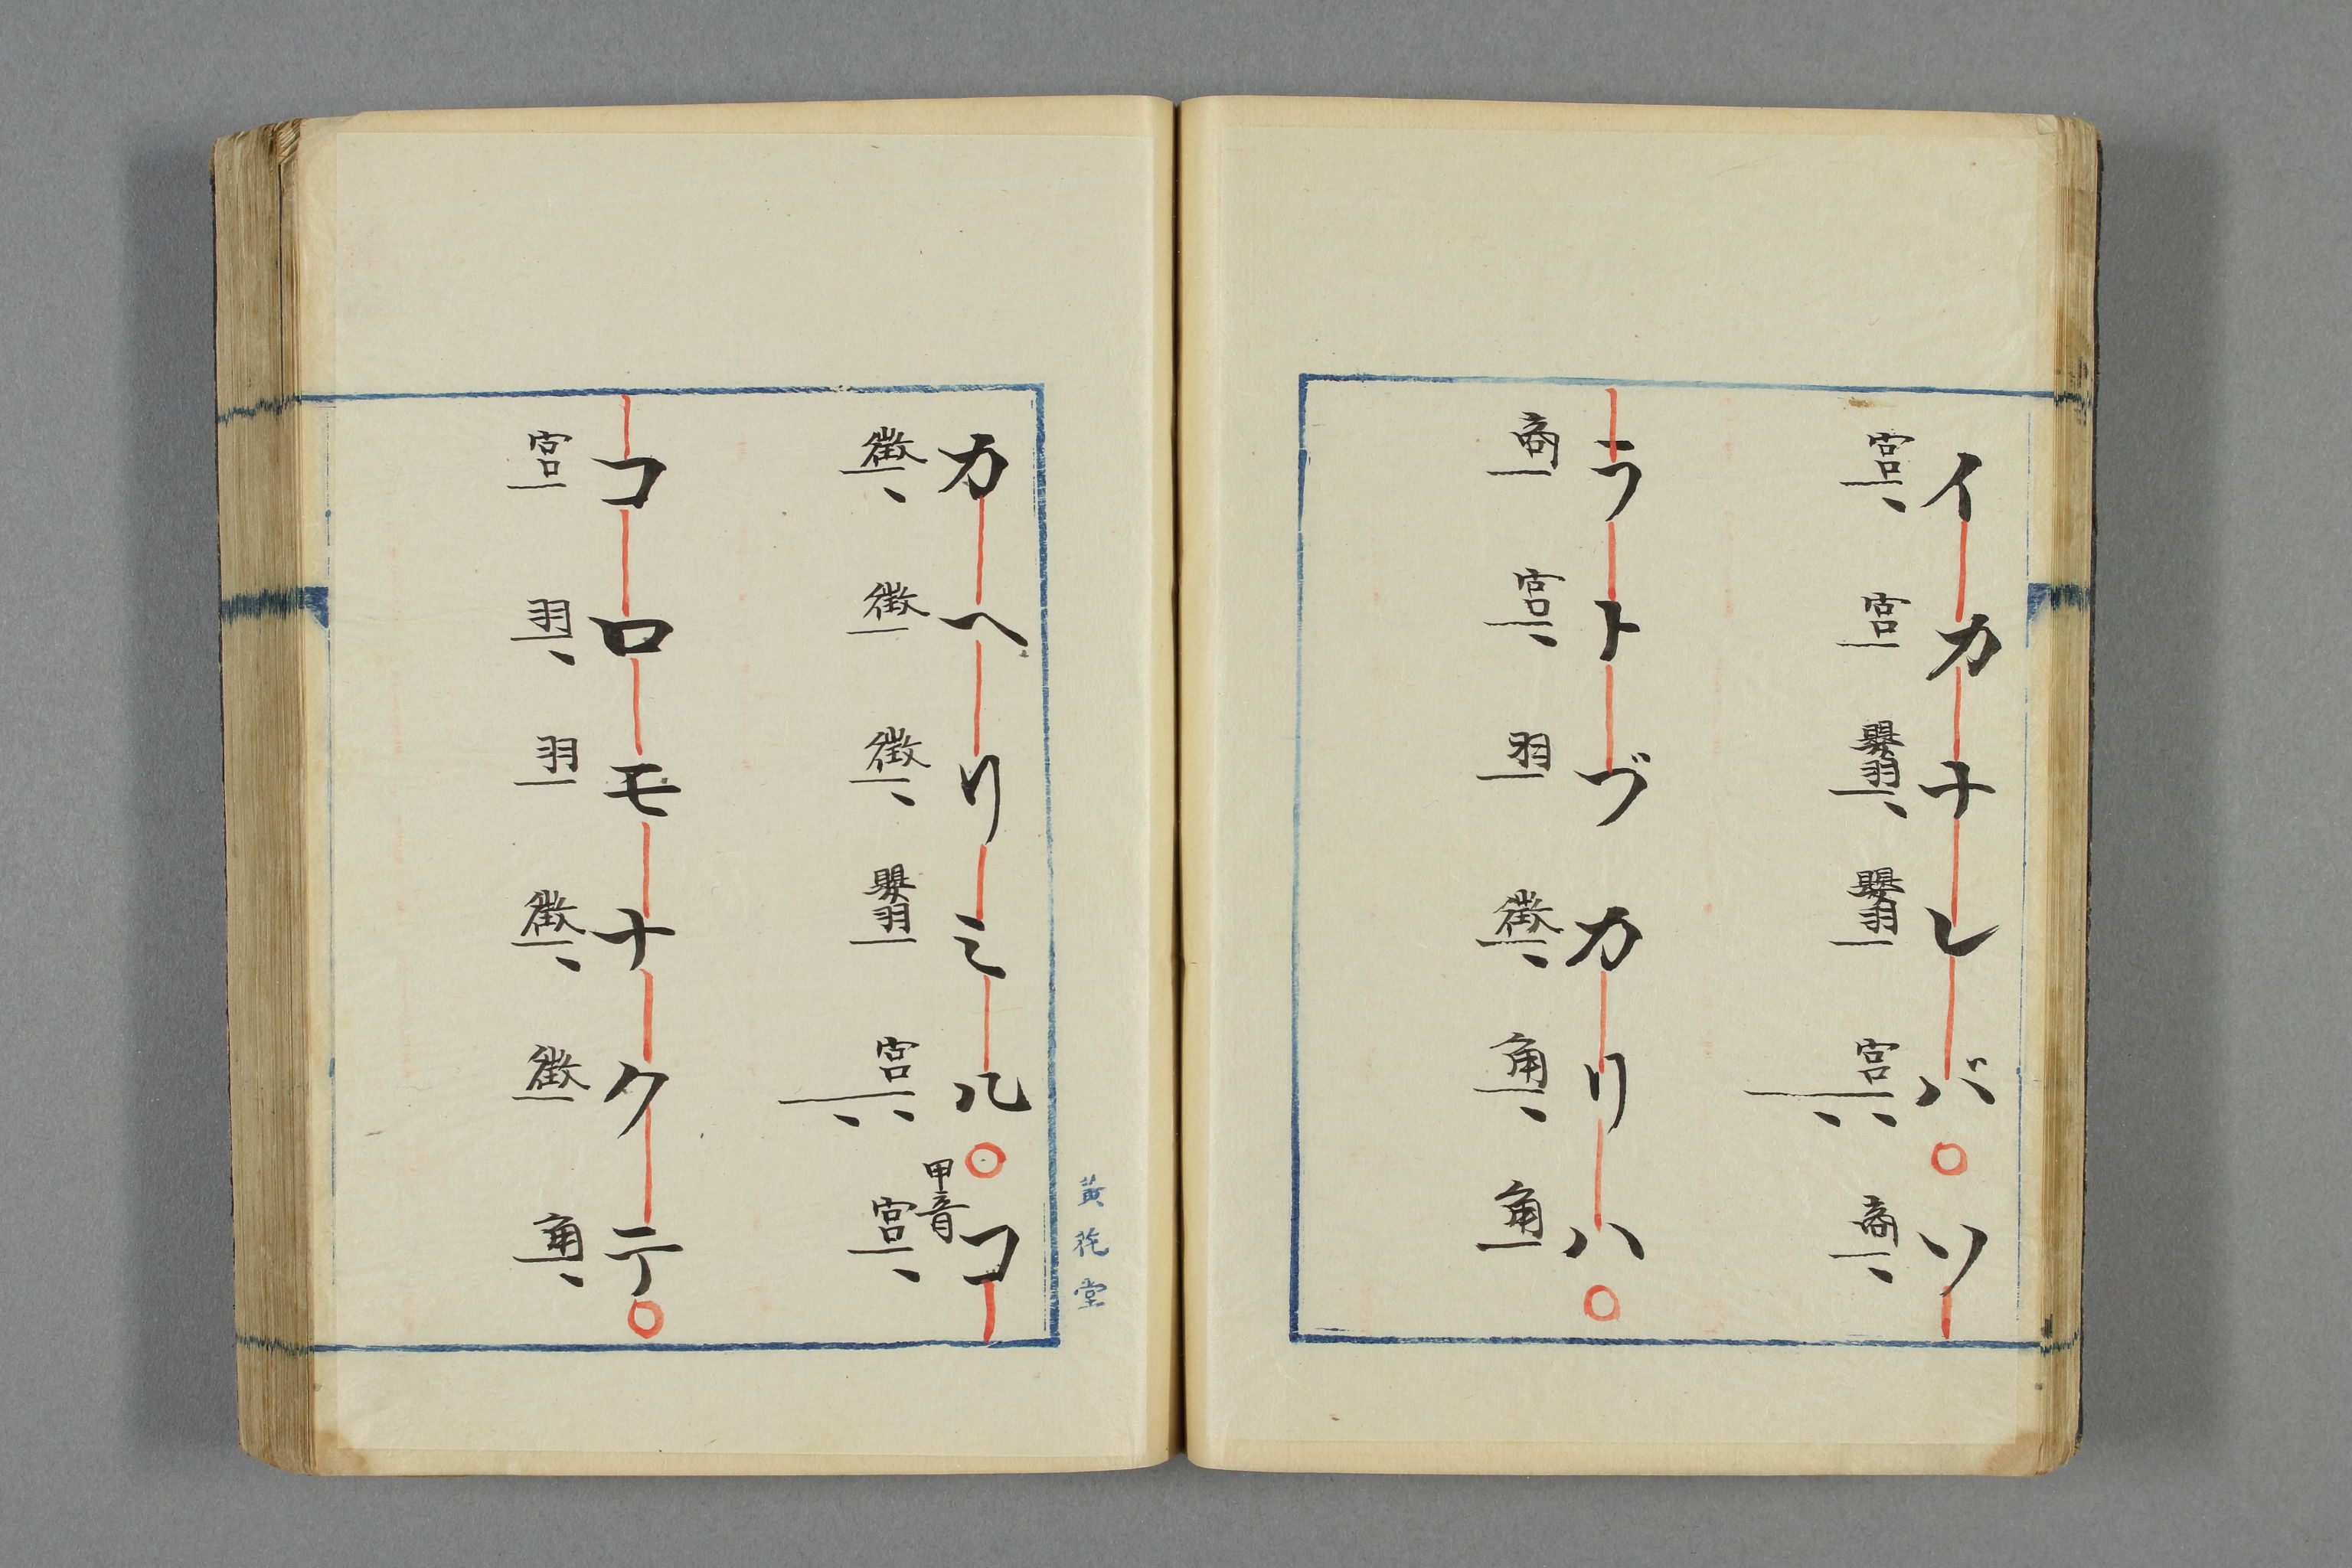 イカナレバ○ソ
宮 宮 嬰羽 嬰羽 宮 商
ラトヅカリハ○
商 宮 羽 徴 角 角
黄花堂
カヘリミル○コ
甲音
徴 徴 徴 嬰羽 宮 宮
コロモナクテ○
宮 羽 羽 徴 徴 角